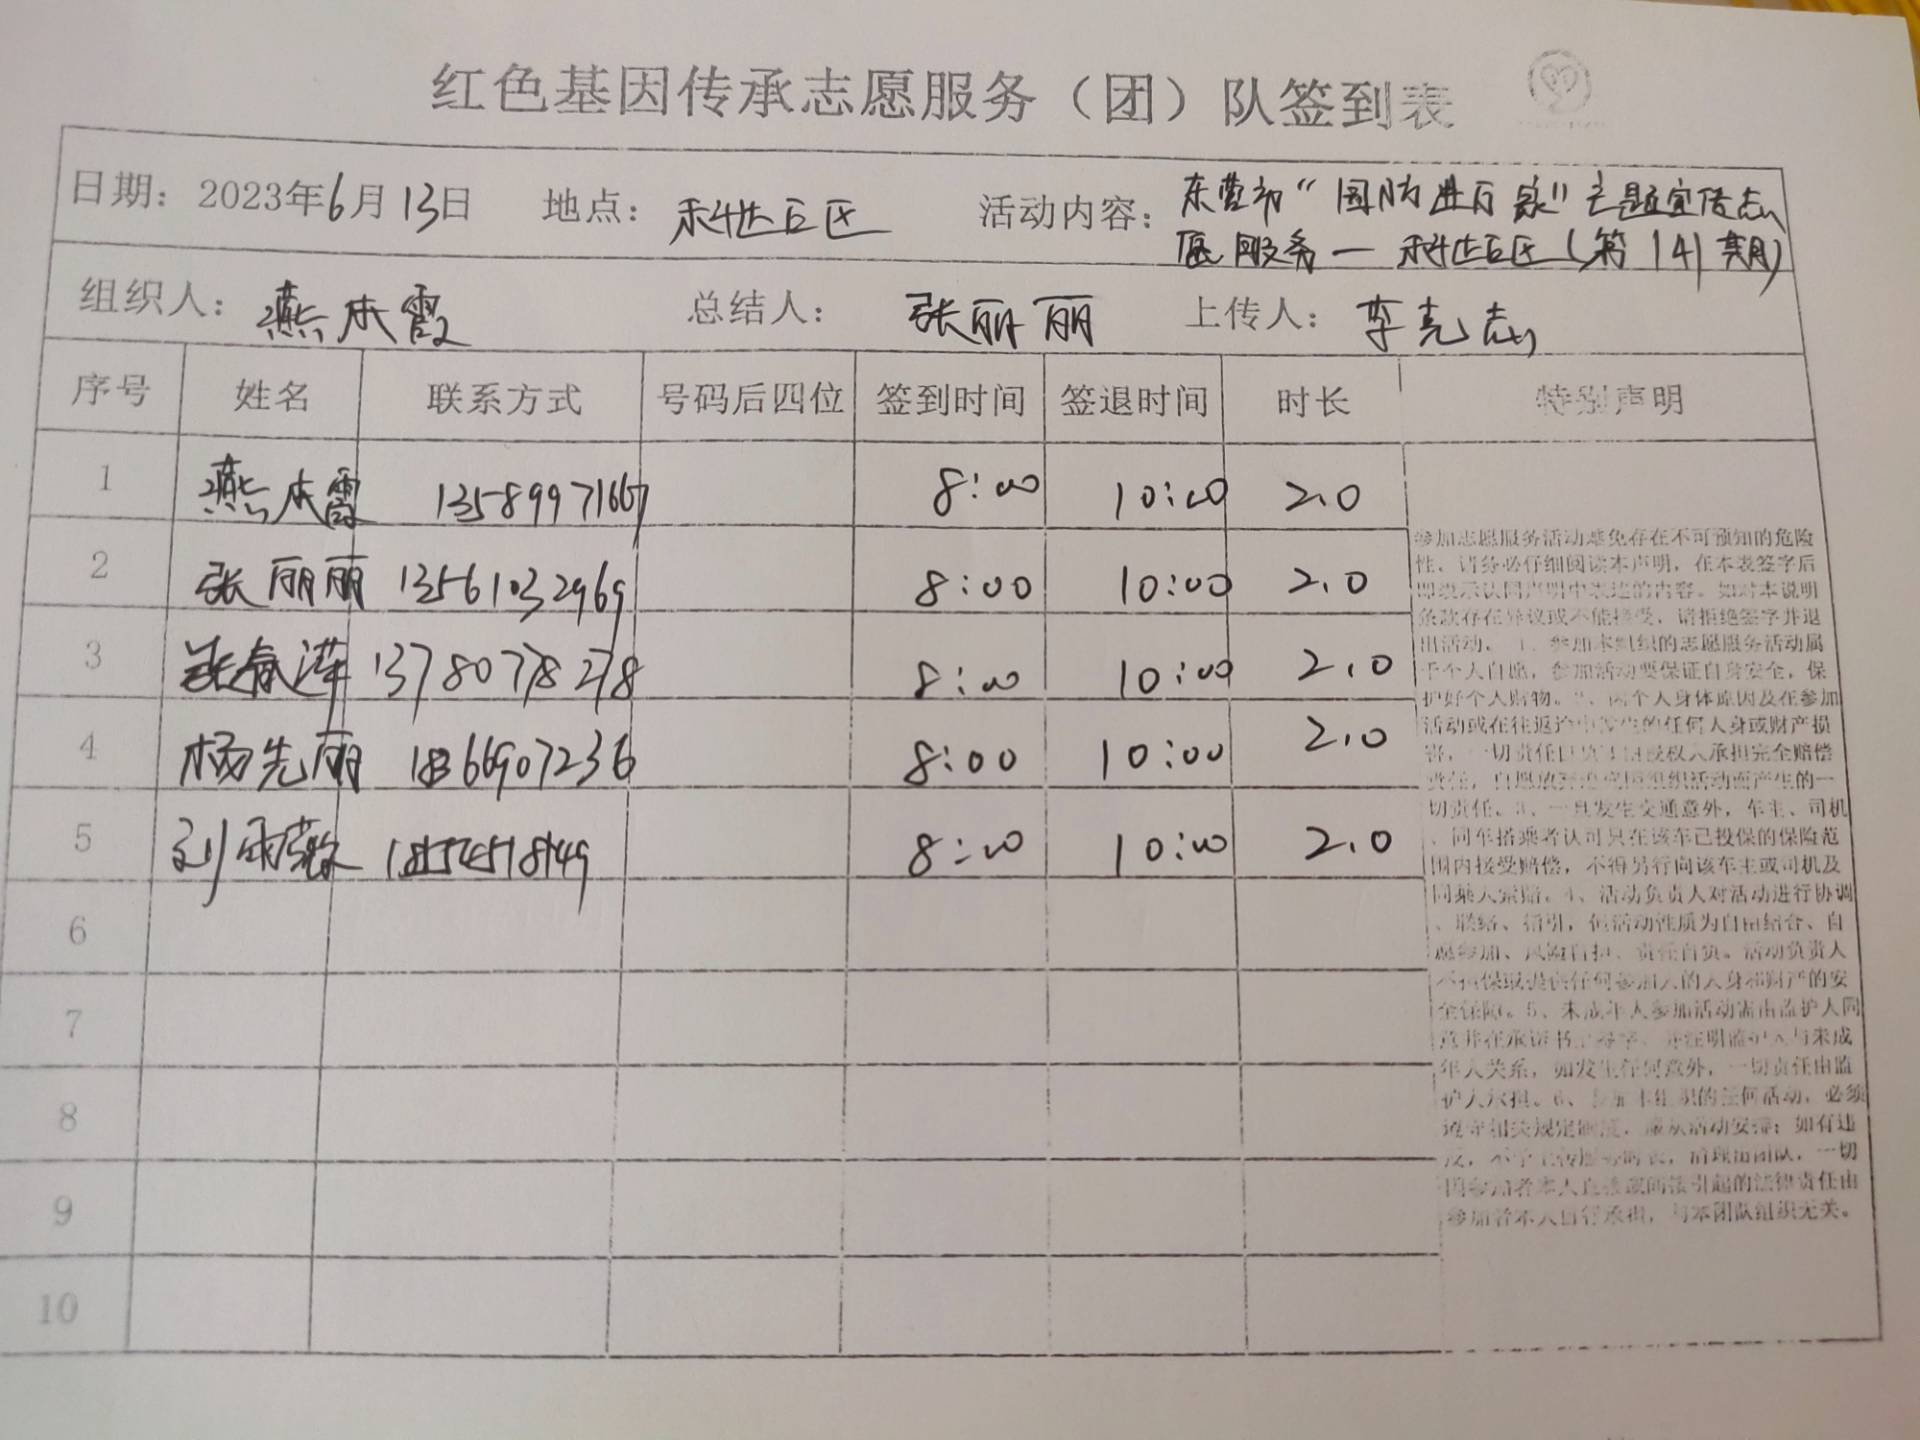 红色基因传承志愿服务（团）队签到表
日期：2023年6月13日 地点：禾才社区 活动内容：东营市“国防进万家”主题宣传志
愿服务一 社区（第141期）
组织人：燕本霞 总结人：张丽丽 上传人：李克志
序号 姓名 联系方式 号码后四位 签到时间 签退时间 时长 特别声明
1 燕本霞 13589971667 8:00 10:00 2.0
2 张丽丽 13561032969 8:00 10:00 2.0
3 张春萍 13780778278 8:00 10:00 2.0
4 杨先丽 18366907236 8:00 10:00 2.0
5 刘雨薇 18554518149 8:00 10:00 2.0
6
7
8
9
10
参加志愿服务活动难免存在不可预知的危险
性、请务必仔细阅读本声明，在本表签字后
即表示认同声明中表达的内容。如对本说明
条款存在异议或不能接受，请拒绝签字并退
出活动。1、参加本组织的志愿服务活动属
于个人自愿，参加活动要保证自身安全，保
护好个人财物。2、因个人身体原因及在参加
活动或在往返途中发生的任何人身或财产损
害，一切责任 授权人承担完全赔偿
责任，自愿放弃 组织活动而产生的一
切责任。3、一旦发生交通意外，车主、司机
、同车搭乘者认可只在该车已投保的保险范
围内接受赔偿，不得另行向该车主或司机及
同乘人索赔。4、活动负责人对活动进行协调
、联络、指引，但活动性质为自由结合、自
愿参加、风险自担、责任自负。活动负责人
不担保或提供任何参加人的人身和财产的安
全保障。5、未成年人参加活动需由监护人同
意并在承诺书上签字，并注明监护人与未成
年人关系，如发生任何意外，一切责任由监
护人承担。6、参加本组织的任何活动，必须
遵守相关规定制度，服从活动安排；如有违
反，不予上传服务时长，清理出团队，一切
因参加者本人直接或间接引起的法律责任由
参加者本人自行承担，与本团队组织无关。